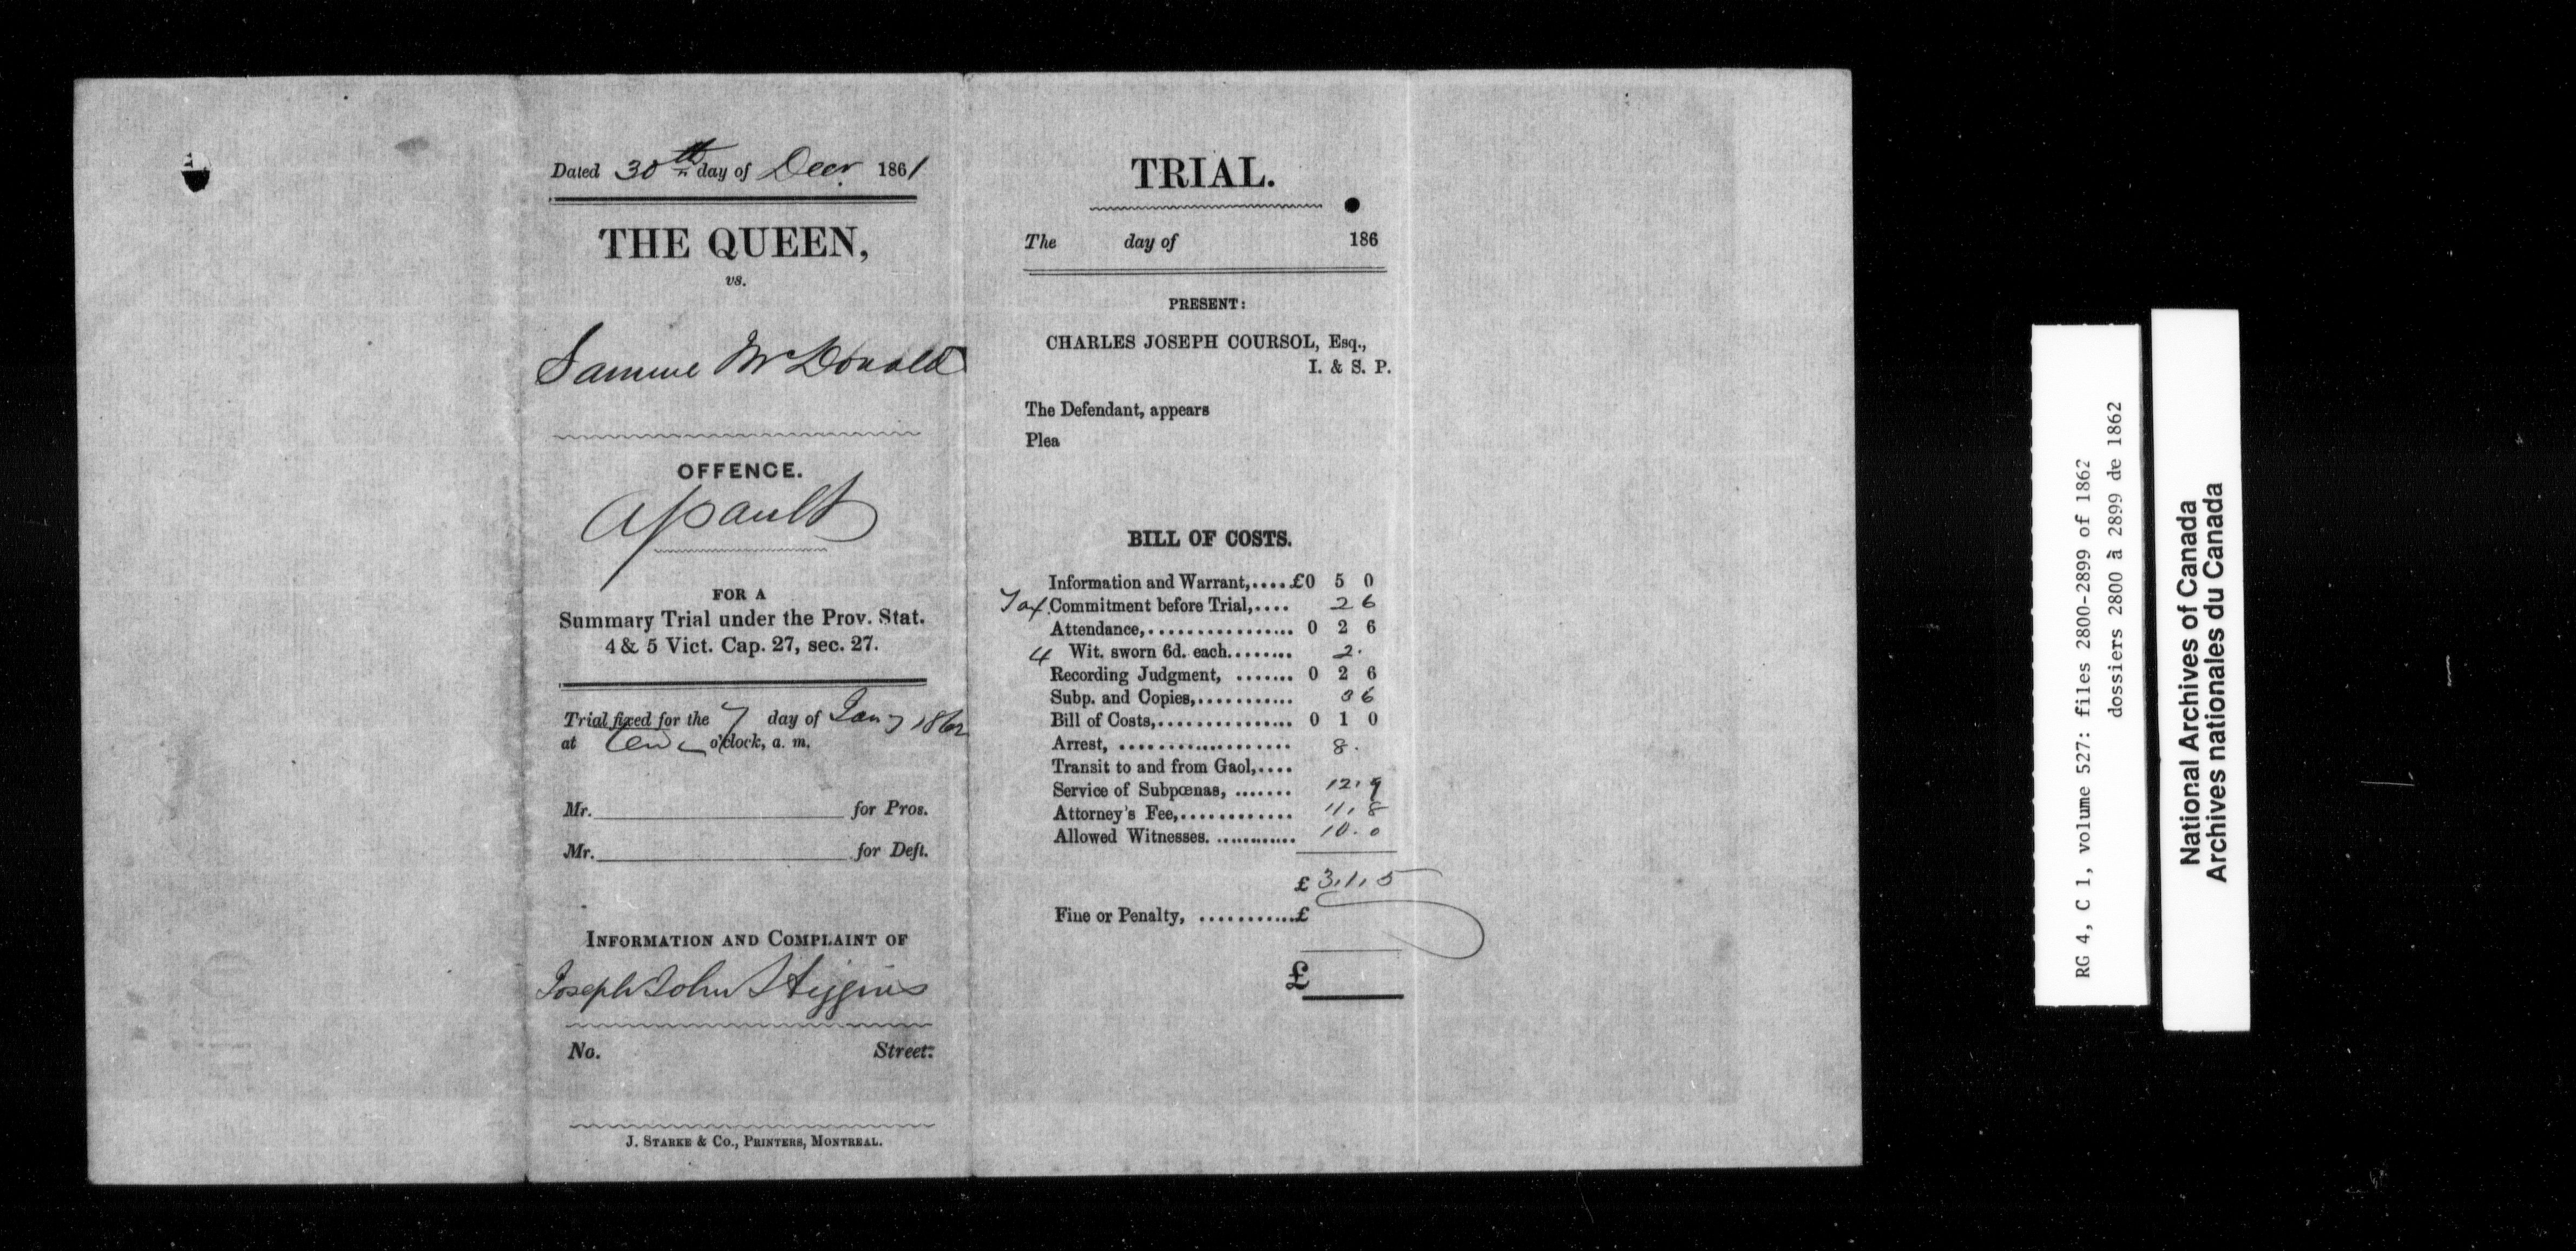 Dated 30th day of Decr 1861
THE QUEEN,
vs.
Samuel McDonald
OFFENCE.
Assault
FOR A
Summary Trial under the Prov. Stat.
4 & 5 Vict. Cap. 27, sec. 27.
Trial fixed for the 7 day of Jany 1862
at ten o'clock, a. m.
Mr. for Pros.
Mr. for Deft.
INFORMATION AND COMPLAINT OF
Joseph John Higgins
No. Street.
J. STARKE & CO., PRINTERS, MONTREAL.
TRIAL.
The day of 186
PRESENT:
CHARLES JOSEPH COURSOL, Esq.,
I. & S. P.
The Defendant, appears
Plea
BILL OF COSTS.
Information and Warrant,....£0 5 0
Tax. Commitment before Trial,.... 2 6
Attendance,................ 0 2 6
4 Wit. sworn 6d. each........ 2.
Recording Judgment, ....... 0 2 6
Subp. and Copies,........... 3 6
Bill of Costs,............... 0 1 0
Arrest, ................... 8.
Transit to and from Gaol,....
Service of Subpœnas, ....... 12.9
Attorney's Fee,............ 11.8
Allowed Witnesses. ............ 10.0
£ 3.1.5
Fine or Penalty, ...........£
£
RG 4, C 1, volume 527: files 2800-2899 of 1862
dossiers 2800 à 2899 de 1862
National Archives of Canada
Archives nationales du Canada